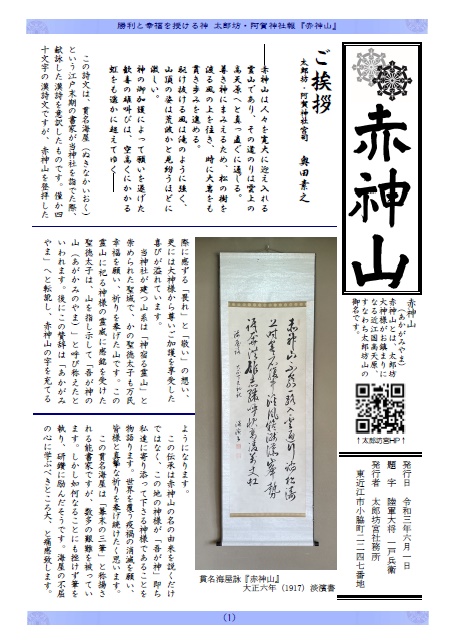 勝利と幸福を授ける神 太郎坊・阿賀神社報『赤神山』
赤神山
赤神山
(あかがみやま)
赤神山とは、太郎坊
大神様がお鎮まりに
なる近江国高天原、
すなわち太郎坊山の
御名です。
↑太郎坊宮HP↑
発行日 令和三年六月一日
題字 陸軍大将 一戸兵衛
発行者 太郎坊宮社務所
東近江市小脇町二二四七番地
ご挨拶
太郎坊・阿賀神社宮司 奥田素之
赤神山は人々を寛大に迎え入れる
霊山であり、その道のりは雲上の
高天原へと真っ直ぐに通じる。
尊き神にまみえるため、松の樹を
渡る風の上を往き、時に大嵩をも
貫き歩みを進める。
駈け抜ける風は滝のように強く、
山頂の姿は荒波かと見紛うほどに
激しい。
神の御加護によって願いを遂げた
歓喜の雄叫びは、空高くにかかる
虹をも遙かに超えてゆく――
この詩文は、貫名海屋(ぬきなかいおく)
という江戸末期の書家が当神社を詣でた際、
献詠した漢詩を意訳したものです。僅か四
十文字の漢詩文ですが、赤神山を登拝した
際に感ずる「畏れ」と「敬い」の想い、
更には大神様から尊いご加護を享受した
喜びが溢れています。
当神社が建つ山系は「神宿る霊山」と
崇められた聖域で、かの聖徳太子も万民
幸福を願い、祈りを捧げた山です。この
霊山に祀る神様の霊威に感銘を受けた
聖徳太子は、山を指し示して「吾が神の
山(あがかみのやま)」と呼び称えたと
いわれます。後にこの賛辞は「あかがみ
やま」へと転訛し、赤神山の字を充てる
ようになります。
この伝承は赤神山の名の由来を説くだけ
ではなく、この地の神様が「吾が神」即ち
私達に寄り添って下さる神様であることを
物語ります。世界を覆う疫禍の消滅を願い、
皆様と真摯な祈りを捧げ続けたく思います。
この貫名海屋は「幕末の三筆」と称揚さ
れる能書家ですが、数多の艱難を被ってい
ます。しかし如何なることにも挫けず筆を
執り、研鑽に励んだそうです。海屋の不屈
の心に学ぶべきところ大、と痛感致します。
貫名海屋詠『赤神山』
大正六年(1917)淡濱書
(1)